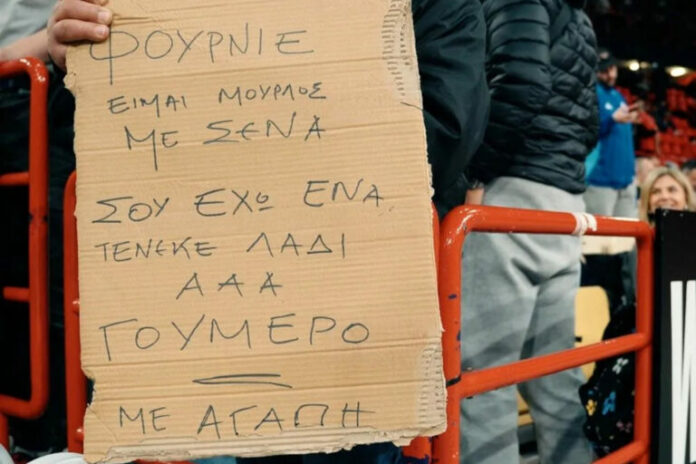 ΦΟΥΡΝΙΕ
ΕΙΜΑΙ ΜΟΥΡΛΟΣ
ΜΕ ΣΕΝΑ
ΣΟΥ ΕΧΩ ΕΝΑ
ΤΕΝΕΚΕ ΛΑΔΙ
ΑΑΑ
ΓΟΥΜΕΡΟ
ΜΕ ΑΓΑΠΗ